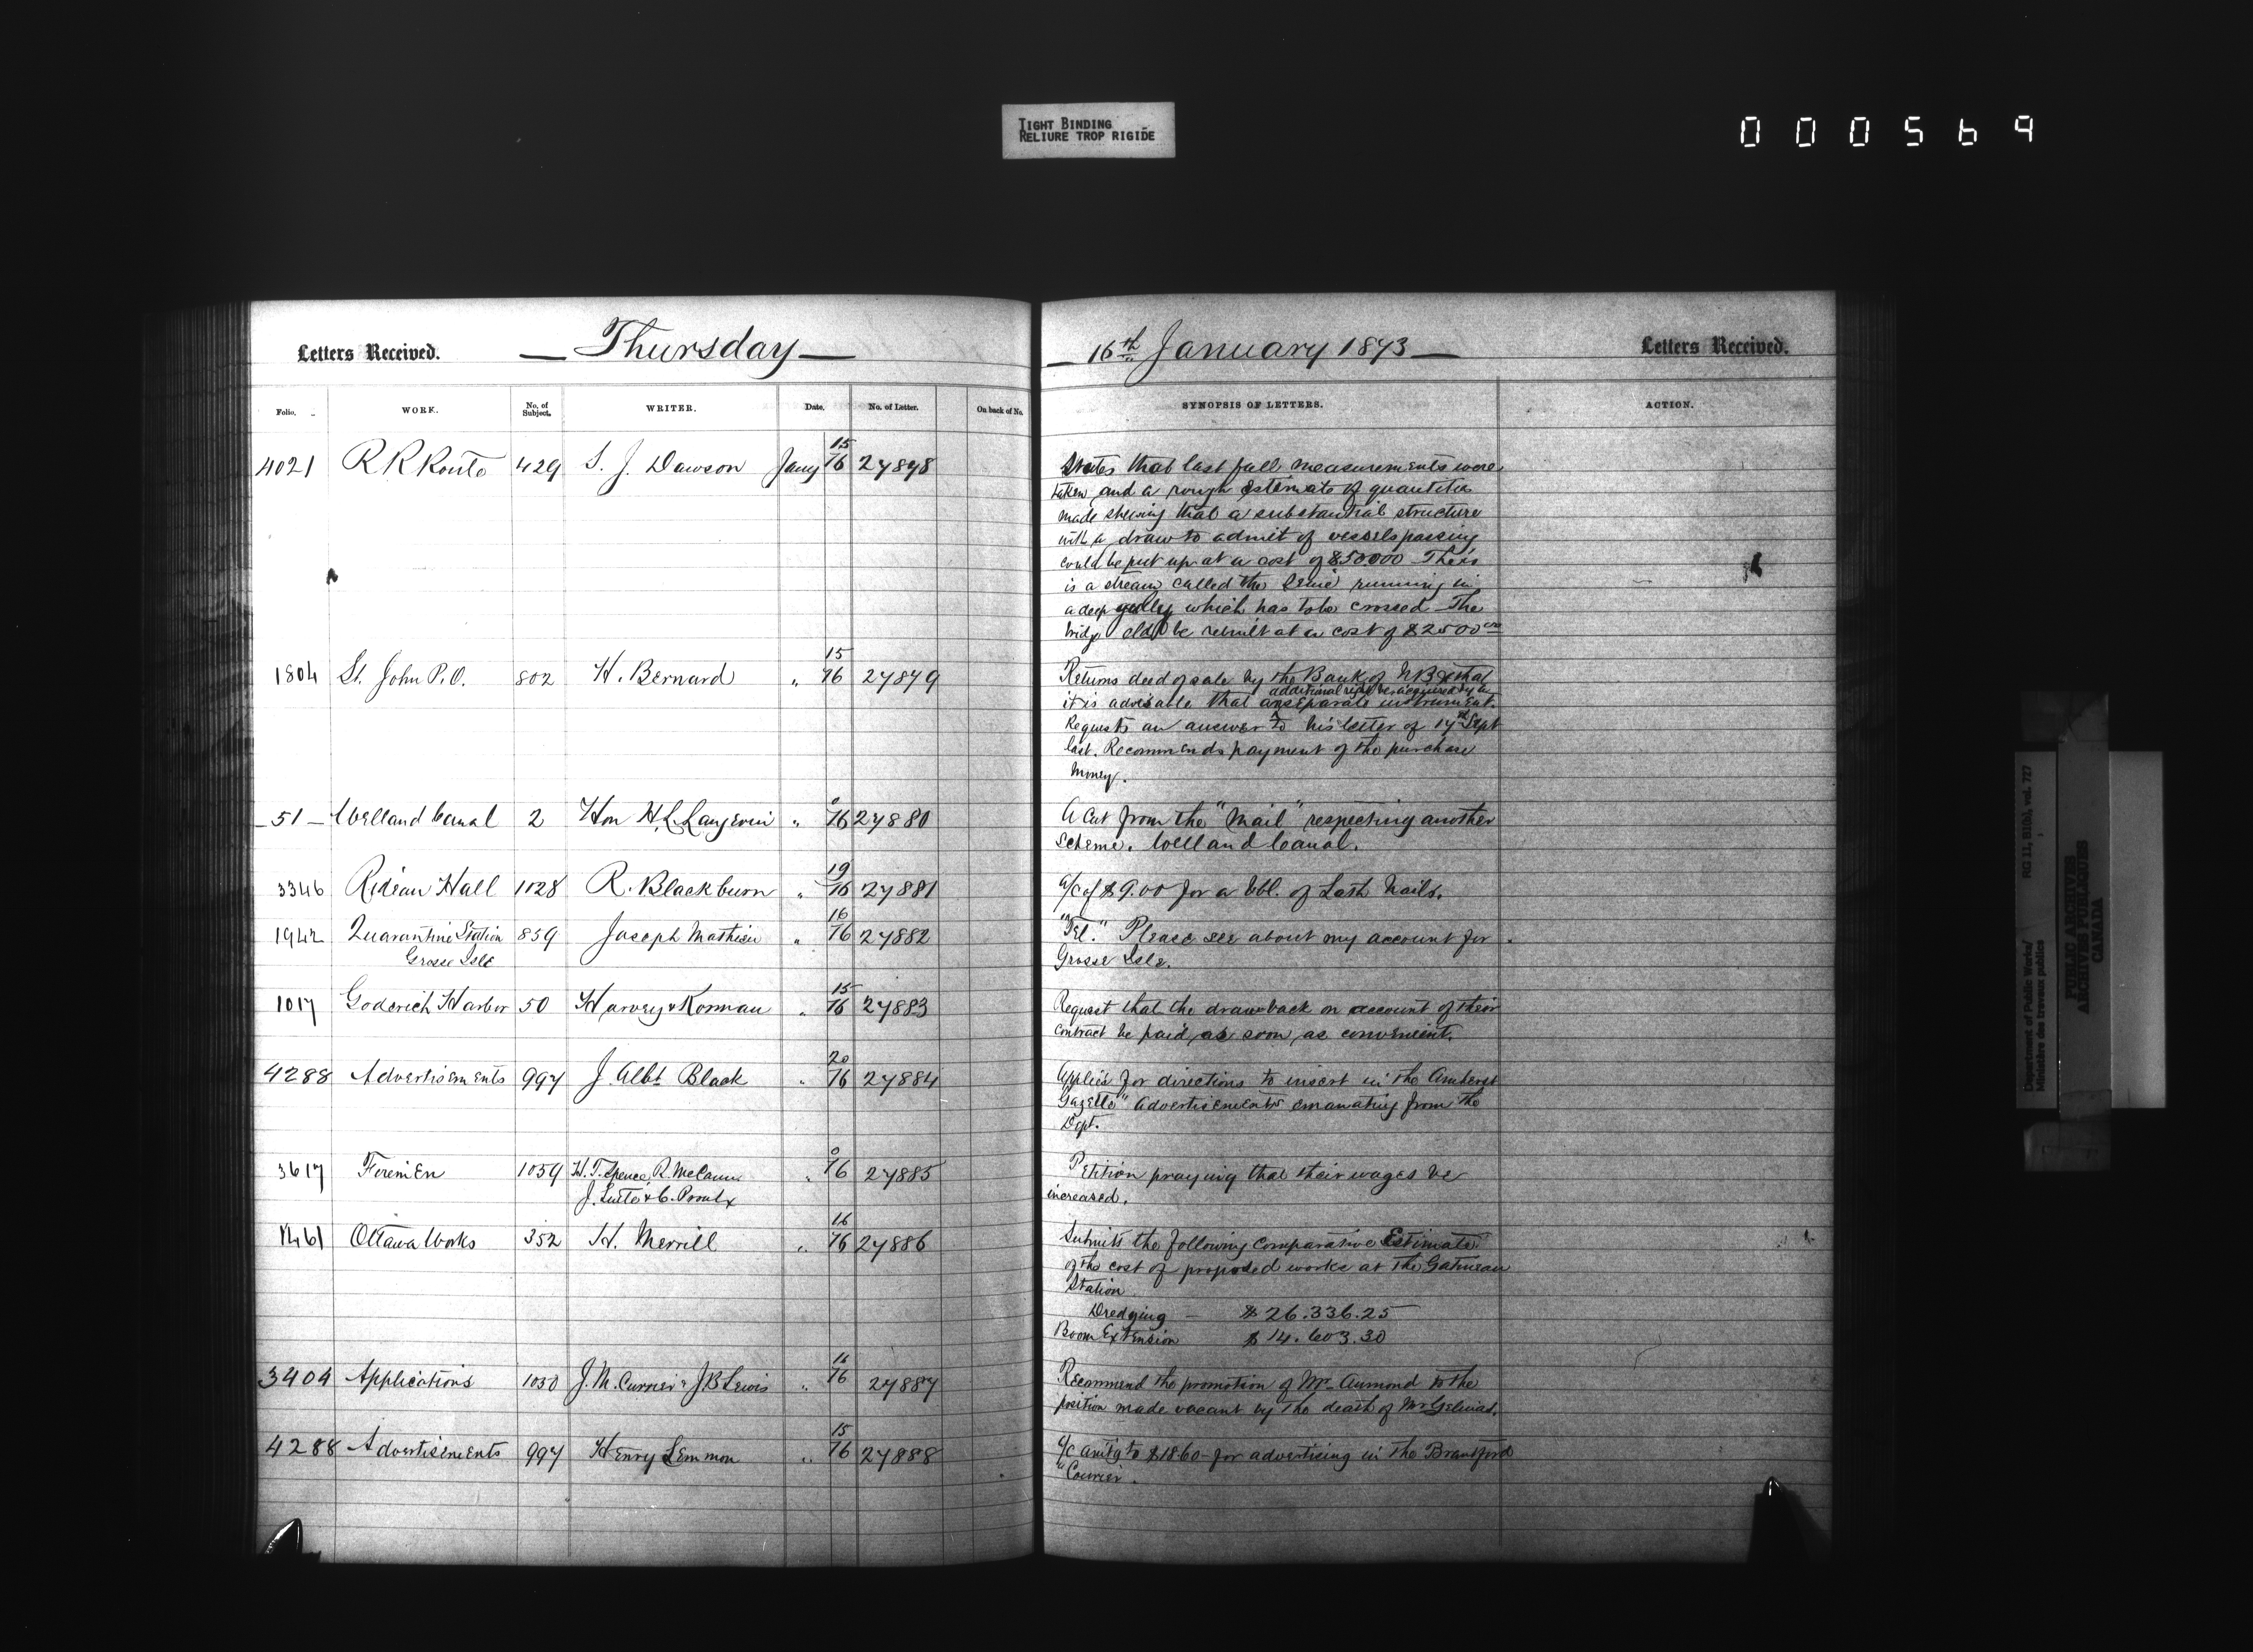 TIGHT BINDING
RELIURE TROP RIGIDE
000569
Letters Received. — Thursday — 16th January 1873 — Letters Received.
Folio. WORK. No. of Subject. WRITER. Date. No. of Letter. On back of No. SYNOPSIS OF LETTERS. ACTION.
4021 R R Route 429 S. J. Dawson Jany 15/16 27878 States that last fall measurements were
taken and a rough estimate of quantities
made shewing that a substantial structure
with a draw to admit of vessels passing
could be put up at a cost of $50000 There
is a stream called the running in
a deep gulley which has to be crossed The
bridge cld be rebuilt at a cost of $2500
1804 St. John P.O. 802 H. Bernard " 15/16 27879 Returns deed of sale by the Bank of N B & that
it is advisable that additional right be acquired by a separate instrument.
Requests an answer to his letter of 17th Sept
last. Recommends payment of the purchase
money.
51 — Welland Canal 2 Hon H. L. Langevin " 0/16 27880 A cut from the "Mail" respecting another
scheme. Welland Canal.
3346 Rideau Hall 1028 R. Blackburn " 19/16 27881 a/c of $9.00 for a bbl. of Lath Nails.
1942 Quarantine Station 859 Joseph Mathieu " 16/16 27882 "Tel." Please see about my account for
Grosse Isle Grosse Isle.
1017 Goderich Harbor 50 Harvey & Korman " 15/16 27883 Request that the drawback on account of their
contract be paid as soon as convenient.
4288 Advertisements 997 J. Albt. Black " 20/16 27884 Applies for directions to insert in the Amherst
Gazette" advertisements emanating from the
Dept.
3617 Firemen 1059 H. T. Spence, R. McCann " 0/16 27885 Petition praying that their wages be
J. Lute & C. Proulx increased.
1461 Ottawa Works 352 H. Merrill " 16/16 27886 Submits the following comparative Estimate
of the cost of proposed works at the Gatineau
Station
Dredging — $ 26.336.25
Boom Extension $ 14.603.30
3404 Applications 1030 J. M. Currier & J. B Lewis " 16/16 27887 Recommend the promotion of Mr. Aumond to the
position made vacant by the death of Mr Gelinas.
4288 Advertisements 997 Henry Lemmon " 15/16 27888 a/c amtg to $18.60 for advertising in the Brantford
"Courier.
Department of Public Works/
Ministère des travaux publics
RG 11, B1(b), vol. 727
PUBLIC ARCHIVES
ARCHIVES PUBLIQUES
CANADA